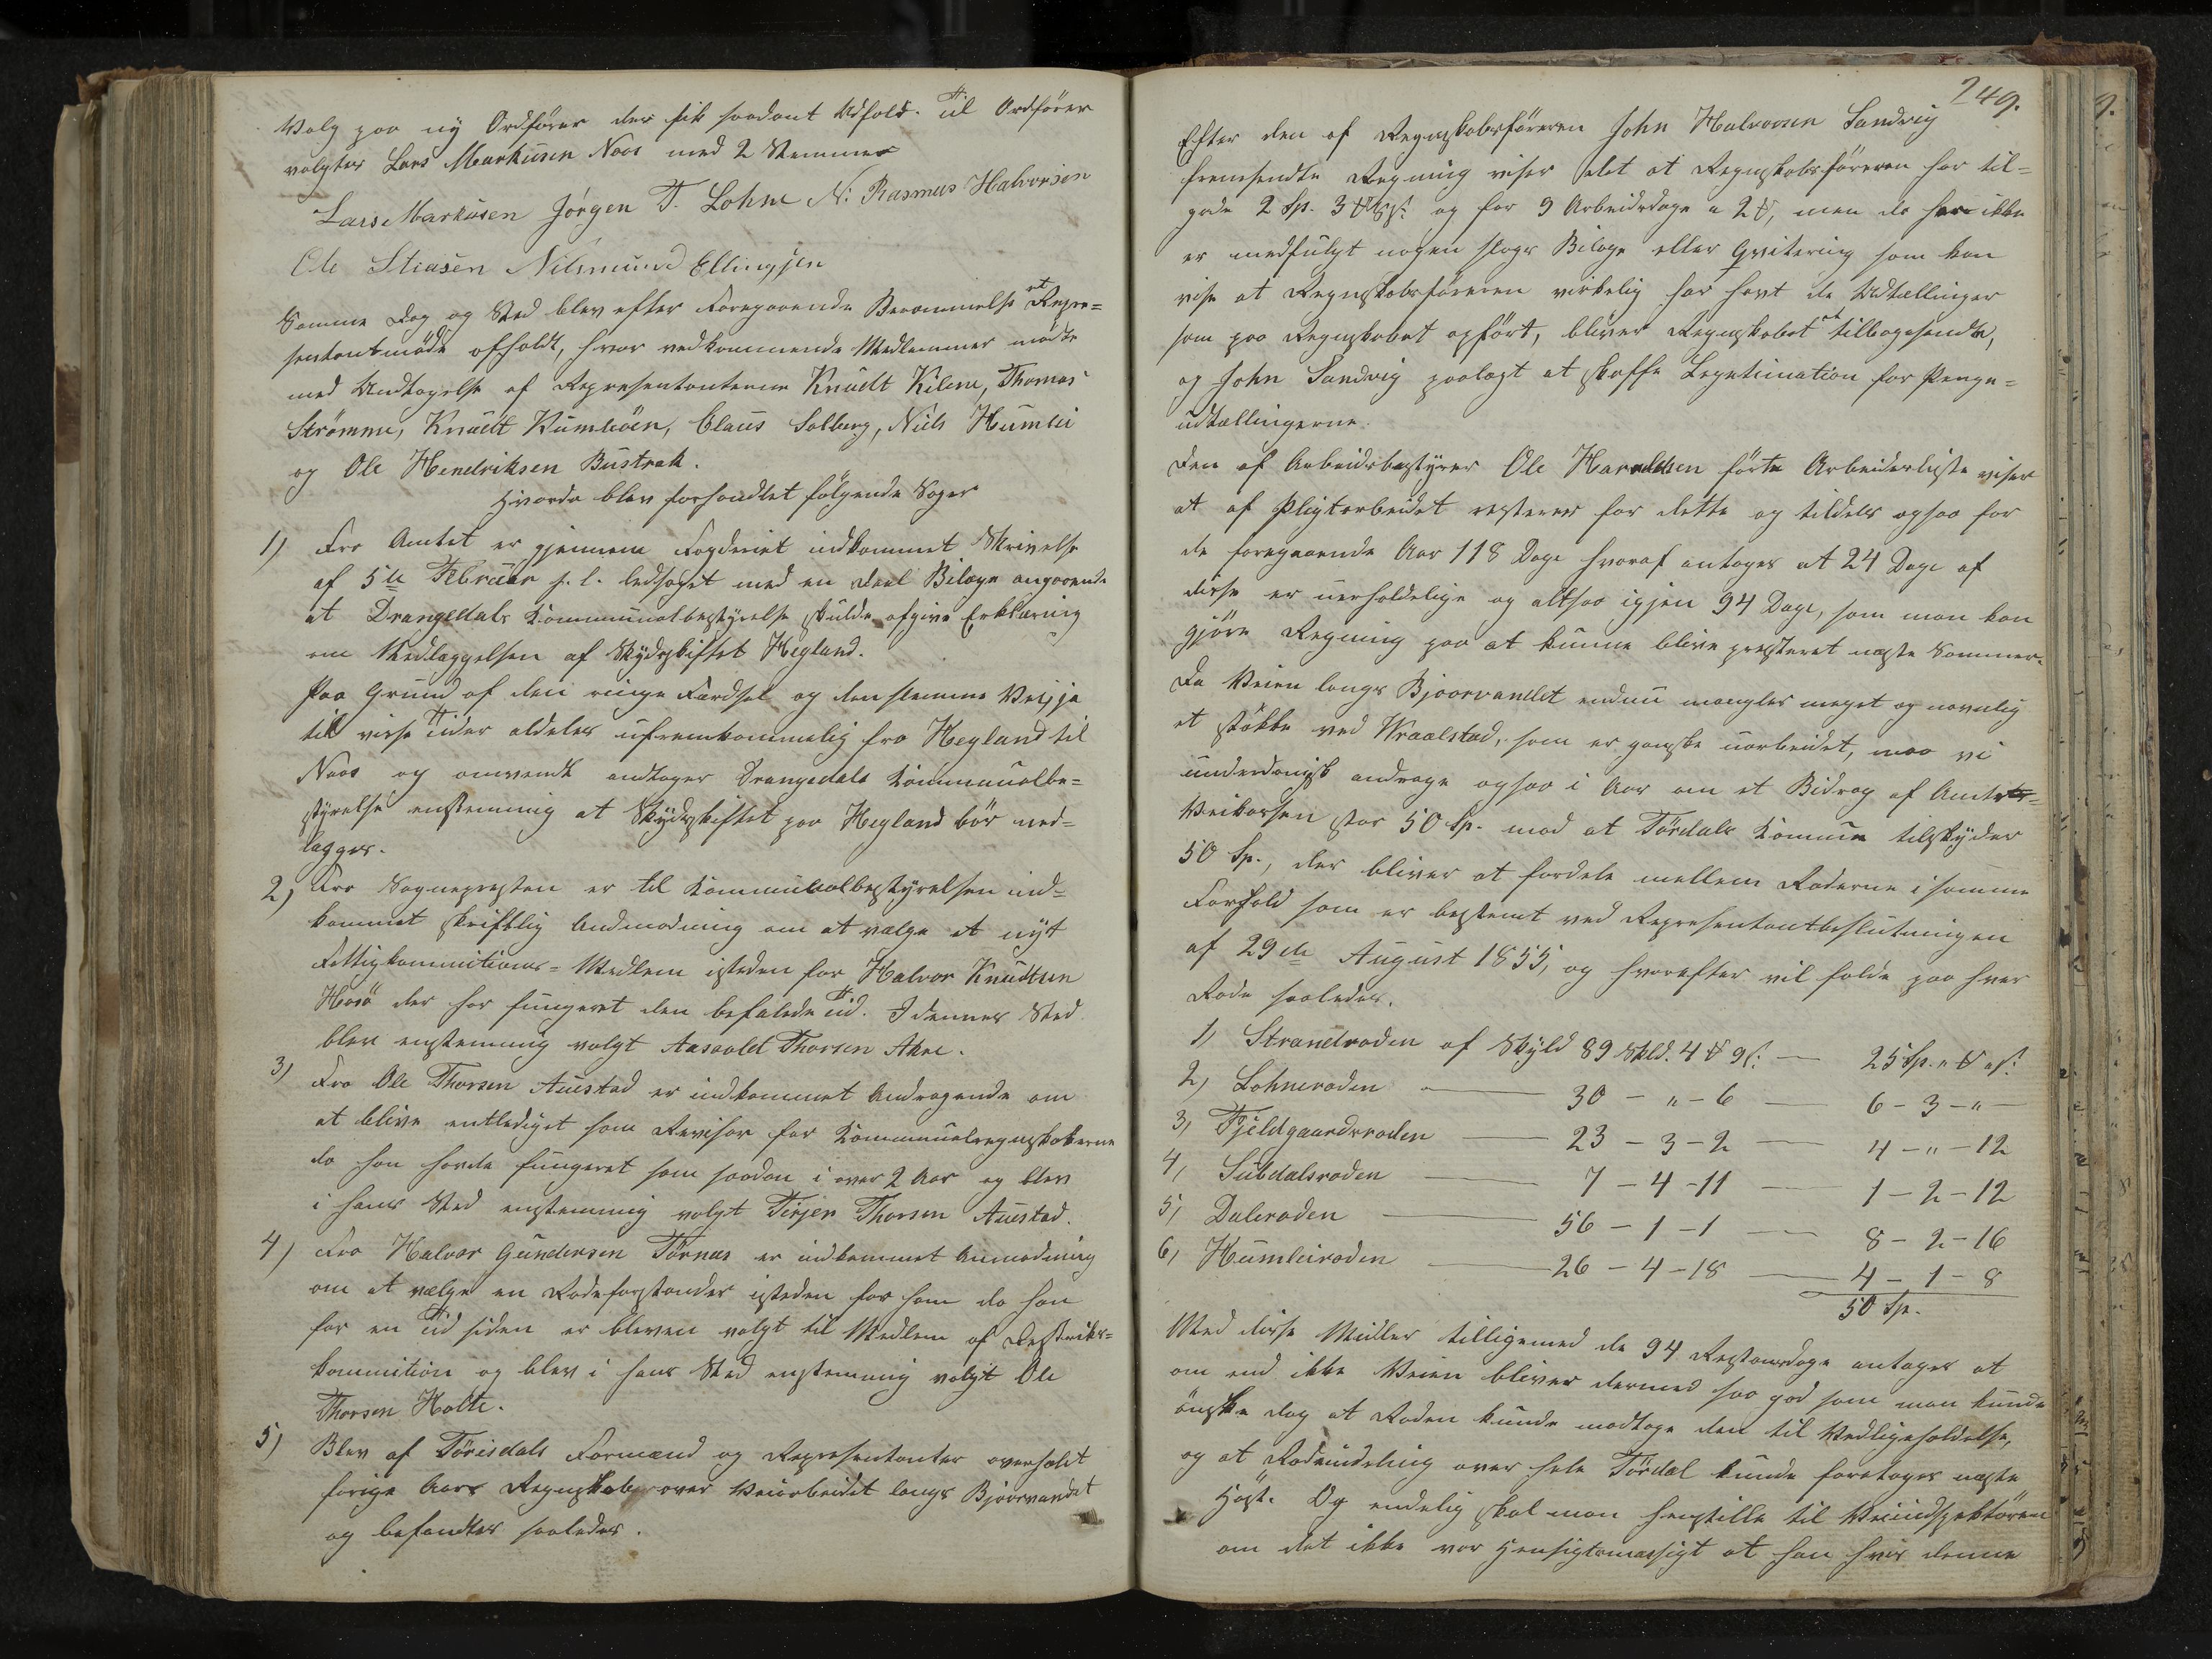 Valg paa ny Ordförer der fik saadant Udfald. Til Ordförer
valgtes Lars Markusen Naas med 2 Stemmer
Lars Markusen Jörgen T. Lohne N: Rasmus Halvorsen
Ole Stiasen Nilsmund Ellingsen
Samme Dag og Sted blev efter Foregaaende Berammelse et Repre=
sentantmöde afholdt, hvor vedkommende Medlemmer mödte
med Undtagelse af Representanterne Knudt Kilene, Thomas
Strömme, Knudt Humleöen, Claus Solberg, Niels Humlei
og Ole Hendriksen Bustrak.
Hvorda blev forhandlet fölgende Sager
1) Fra Amtet er gjennem Fogderiet indkommet Skrivelse
af 5te Februar s. l. ledsaget med en Deel Bilage angaaende
at Drangedals Kommunalbestyrelse skulde afgive Erklæring
om Nedlæggelsen af Skydsskiftet Hegland.
Paa Grund af den ringe Færdsel og den slemme Vei, ja
til visse Tider aldeles ufremkommelig fra Hegland til
Naas og omvendt andtager Drangedals Kommunalbe=
styrelse enstemmig at Skydsskiftet paa Hegland bör ned=
lægges.
2) Fra Sognepresten er til Kommunalbestyrelsen ind=
kommet skriftlig Andmodning om at vælge et nyt
Fattigkommitions=Medlem isteden for Halvor Knudtsen
Hosö der har fungeret den befalede Tid. I dennes Sted
blev enstemmig valgt Aasoldt Thorsen Akre.
3) Fra Ole Thorsen Austad er indkommet Andragende om
at blive entlediget som Revisor for Kommunalregnskaberne
da han havde fungeret som saadan i over 2 Aar og blev
i hans Sted enstemmig valgt Terjer Thorsen Austad.
4) Fra Halvor Gundersen Törnes er indkommet Anmodning
om at vælge en Rodeforstander isteden for ham da han
for en Tid siden er bleven valgt til Medlem af Destrikts=
kommition og blev i hans Sted enstemmig valgt Ole
Thorsen Holte.
5) Blev af Törisdals Formænd og Representanter overholdt
forige Aars Regnskab over Veiarbeidet langs Bjaarvandet
og befandtes saaledes.
249.
Efter den af Regnskabsföreren John Halvorsen Sandvig
fremsendte Regning viser det at Regnskabsföreren har til=
gode 2 Sp. 3 og for 9 Arbeidsdage a 2, men da her ikke
er medfulgt nogen slags Bilage eller Qvitering som kan
vise at Regnskabsföreren virkelig har havt de Udtællinger
som paa Regnskabet opfört, bliver Regnskabet at tilbagesende,
og John Sandvig paalagt at skaffe Legetimation for Penge=
udtællingerne.
Den af Arbeidsbestyrer Ole Haraldsen förte Arbeidsliste viser
at af Pligtarbeidet resterer for dette og tildels ogsaa for
de foregaaende Aar 118 Dage hvoraf antages at 24 Dage af
disse er uerholdelige og altsaa igjen 94 Dage, som man kan
gjöre Regning paa at kunne blive presteret næste Sommer.
Da Veien langs Bjaarvandet endnu mangler meget og navnlig
et stökke ved Kraalstad, som er ganske uarbeidet, maa vi
underdanigst andrage ogsaa i Aar om et Bidrag af Amtets=
Veikassen stor 50 Sp. mod at Tördals Komune tilskyder
50 Sp., der bliver at fordele mellem Roderne i samme
Forhold som er bestemt ved Representantbeslutningen
af 29de August 1855, og hvorefter vil falde paa hver
Rode saaledes.
1) Strandroden af Skyld 89 Skld. 4 9 s: — 25 Sp. "
2) Lohneroden — 30 - " - 6 — 6 - 3 - "
3) Fjeldgaardsroden — 23 - 3 - 2 — 4 - " - 12
4) Subdalsroden — 7 - 4 - 11 — 1 - 2 - 12
5) Daleroden — 56 - 1 - 1 — 8 - 2 - 16
6) Humleiroden — 26 - 4 - 18 — 4 - 1 - 8
50 Sp.
Med disse Midler tilligemed de 94 Restansdage antages at
om end ikke Veien bliver dermed saa god som man kunde
önske dog at Roden kunde modtage den til Vedligeholdelse,
og at Rodeindeling over hele Tördal kunde foretages næste
Höst. Og endelig skal man henstille til Veiindspektören
om det ikke var Hensigtsmæssigt at han hvis denne